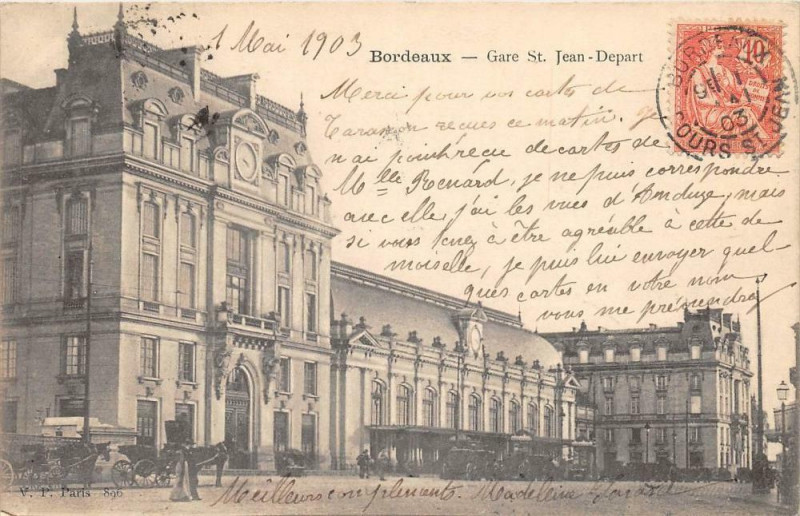 1 Mai 1903
Bordeaux — Gare St. Jean - Depart
Merci pour vos cartes de
Tarascon reçues ce matin. Je
n'ai point reçu de cartes de
Mlle Renard, je ne puis correspondre
avec elle, j'ai les vues d'Anduze, mais
si vous tenez à être agréable à cette de
moiselle, je puis lui envoyer quel-
ques cartes en votre nom
vous me préviendrez
Meilleurs compliments. Madeleine
V. P. Paris 896
BORDEAUX
COURS ST
03
10